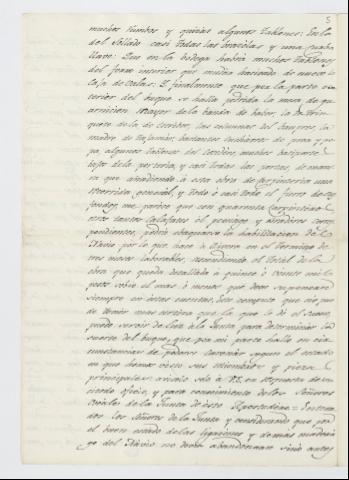 5
muchos Tumbos y quizas algunos Tablones: En la
del Sollado casi todas las bracolas y una quaba
llave: Que en la bodega habrá muchos tablones
del forro interior que mudar haciendo de nuevo la
Caja de balas. Y finalmente que por la parte ex
terior del buque se halla podrida la mesa de gu
arnicion Mayor de la banda de babor, la de trin
quete de la de estribor, las columnas del
madre de tajamar, bastantes de proa y po
pa, algunos tablones del muchos barraparte
tejos de la porteria, y casi todas las portas, de mane
ra que añadiendo á esta obra de carpinteria una
recorrida general, y todo ó casi todo el forro de sus
fondos, me parece que con quarenta carpinteros
otros tantos calafates el peonage y herreros corres
pondientes, podrá abaguarse la habilitacion de
Navio por lo que hace á Rivera en el termino de
tres meses laborables, ascendiendo el total de la
obra que queda detallada á quince ó veinte mil
pesos sobre el mas ó menos que debe suponerse
siempre en estas cuentas, Este computo que no pue
de tener mas certeza que la que le dá el
puede servir de luz á la Junta para determinar la
suerte del buque, que por mi parte hallo en cir
cunstancias de poderse carenar segun el estado
en que hemos visto sus miembros y piezas
principales: avisolo á VS. en respuesta de su
citado oficio, y para conocimiento de los Señores
Vocales de la Junta de este Apostadero = Entera
dos los Señores de la Junta y considerando que por
el buen estado de las ligazones y demas madera
ge del Navio no debia abandonarse sino antes